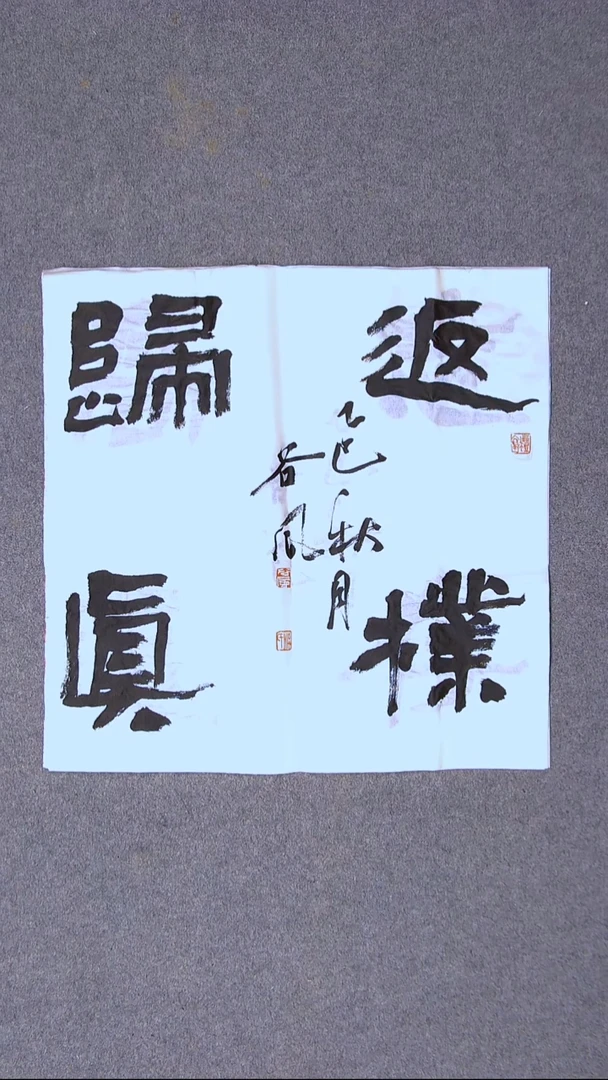 返樸
歸真
乙巳秋月
谷風